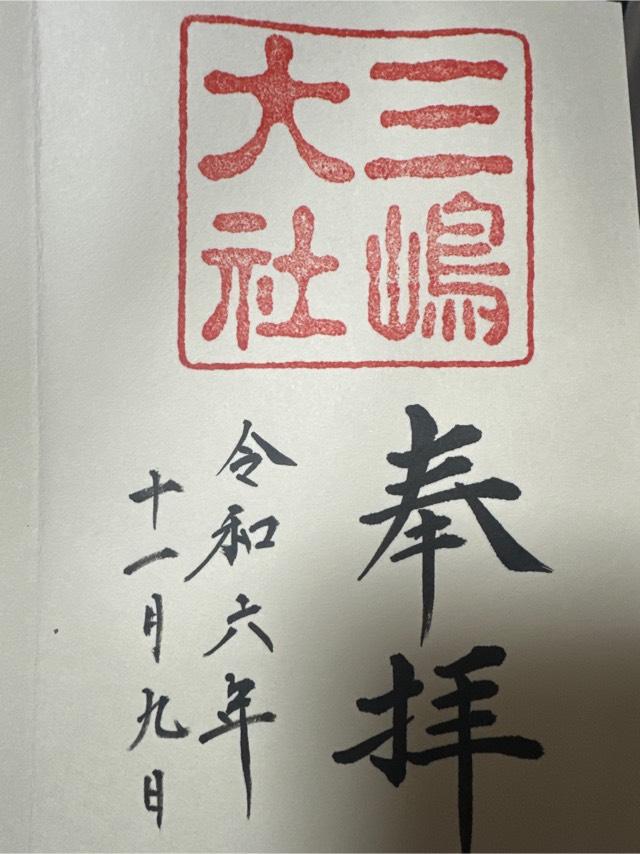 三嶋
大社
奉拝
令和六年
十一月九日